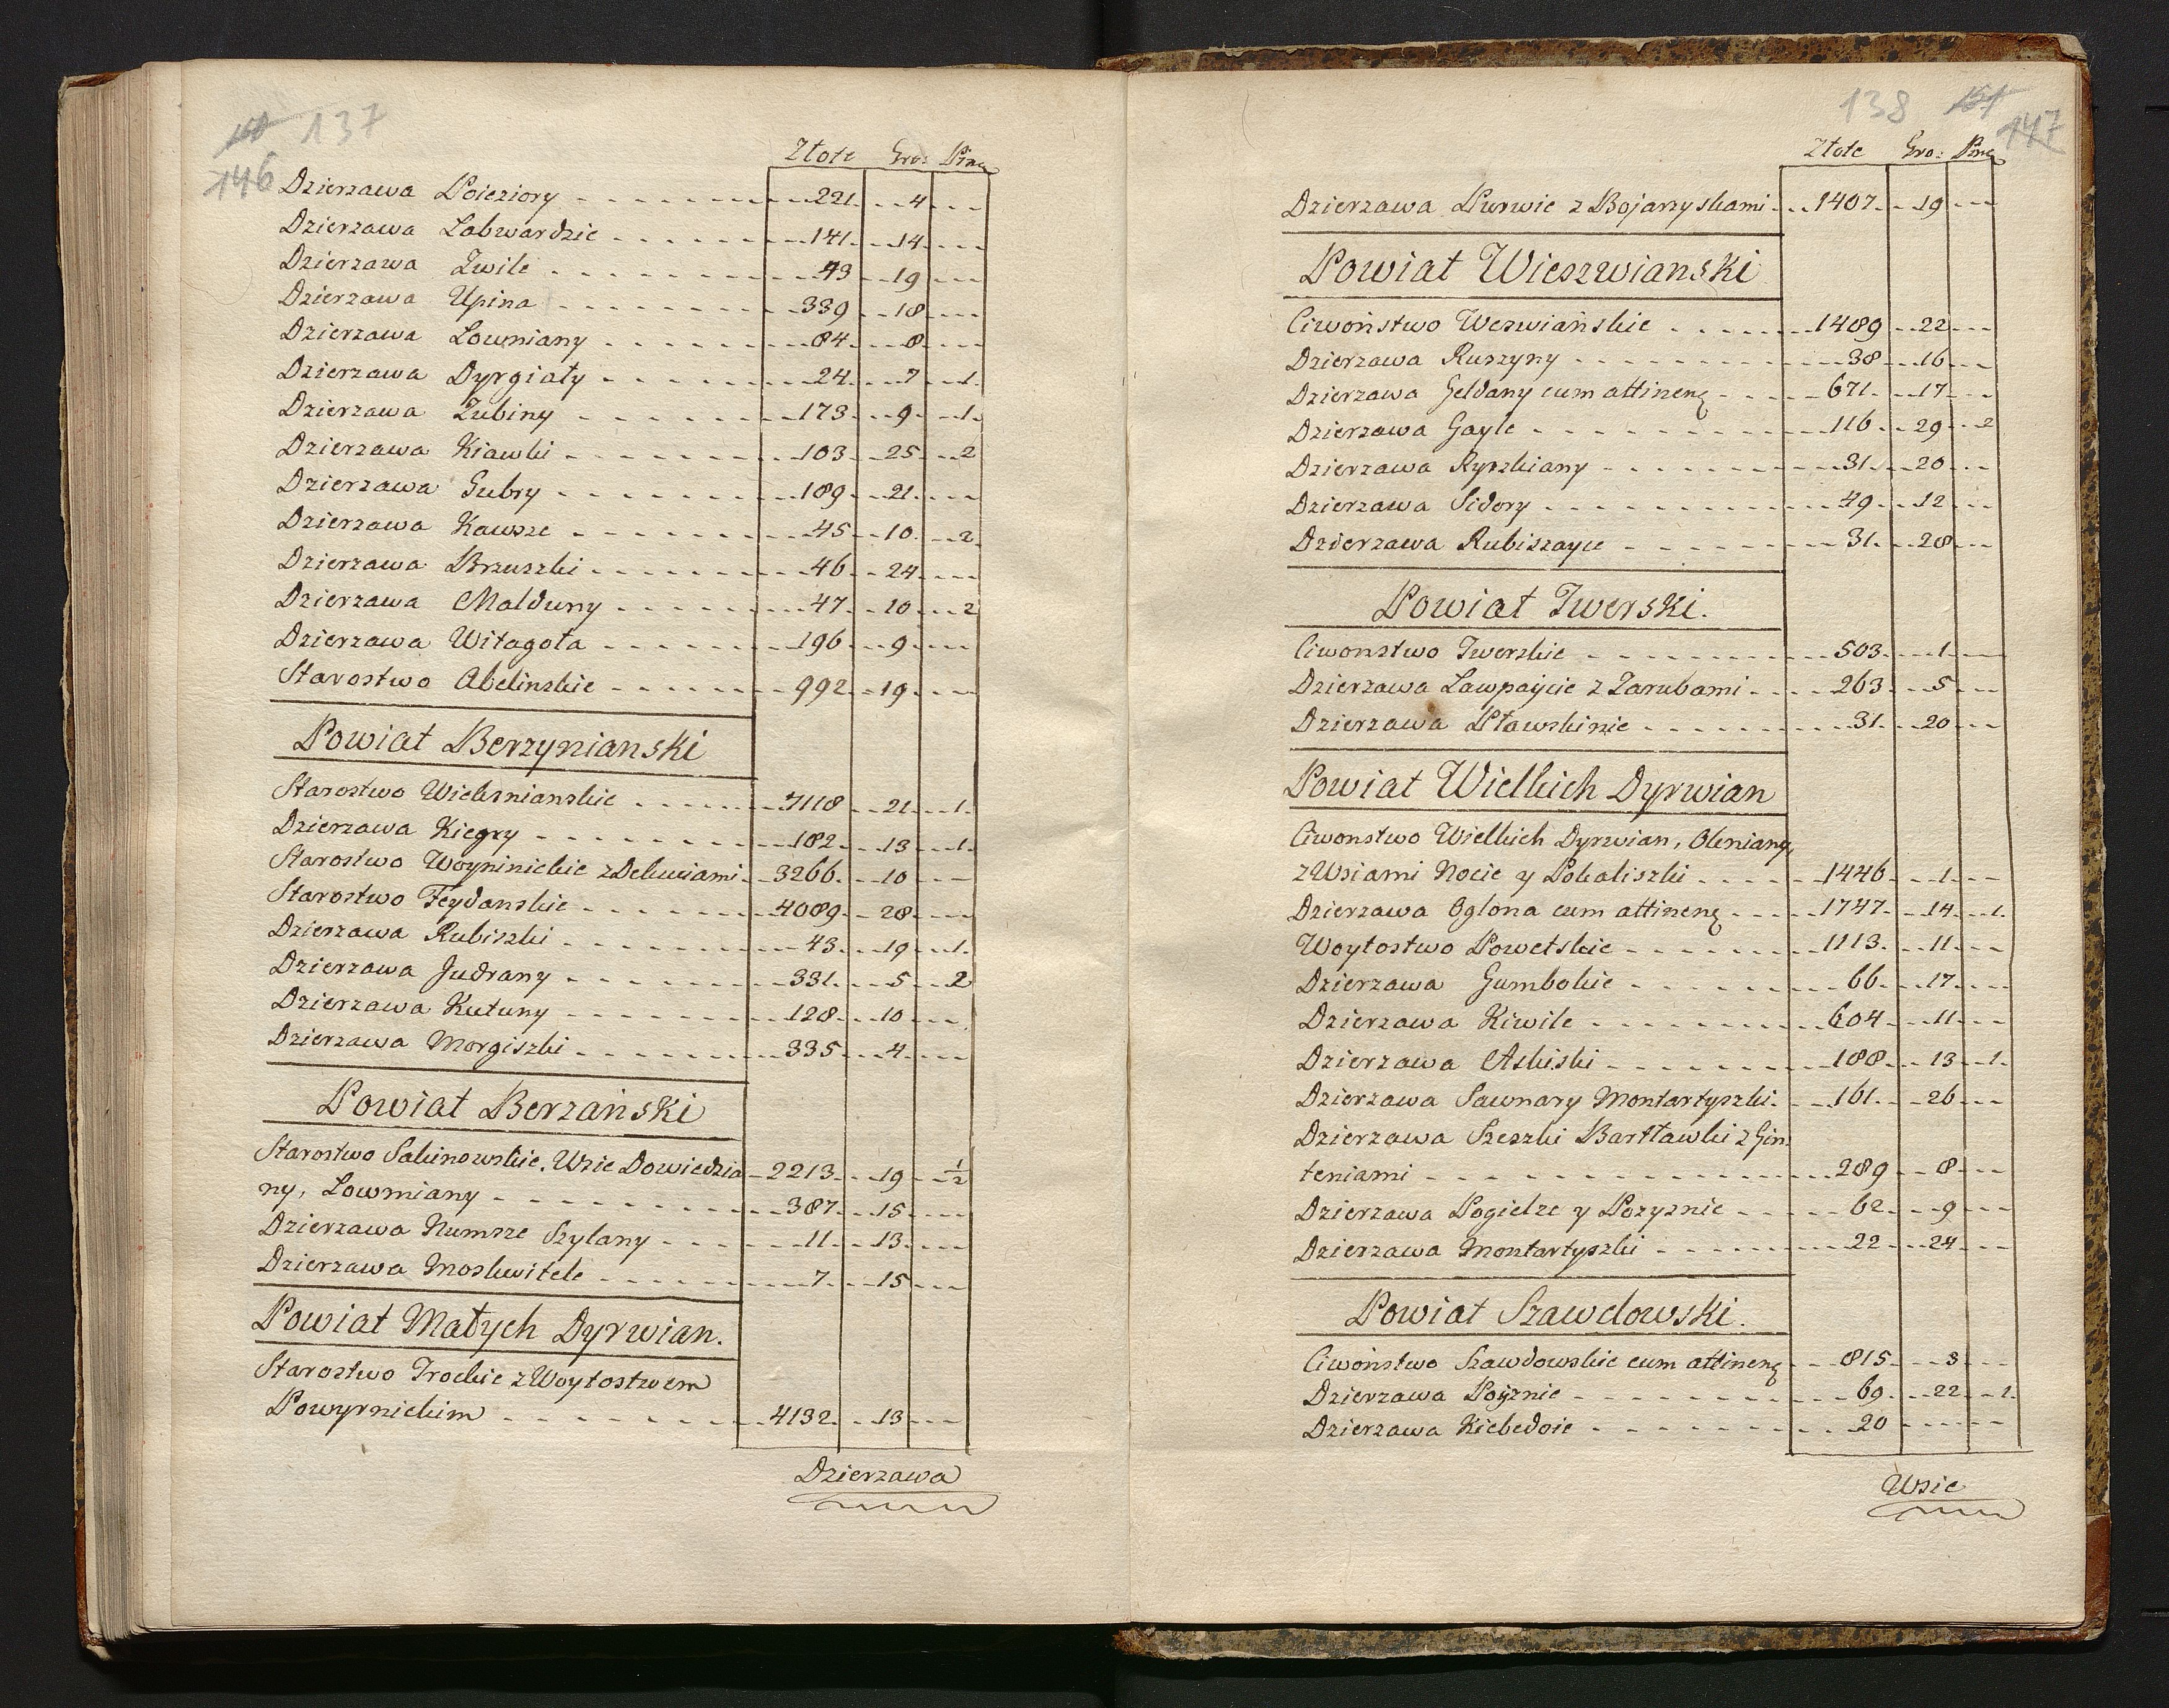 137
146
Złote Gro: Pieną
Dzierzawa Poieziory 221. 4
Dzierzawa Labwardzie 141. 14
Dzierzawa Zwile 43 19
Dzierzawa Upina 339 18
Dzierzawa Lowmiany 84. 8
Dzierzawa Dyrgiały 24. 7 1.
Dzierzawa Zubiny 173. 9. 1.
Dzierzawa Kiawki 103. 25 2
Dzierzawa Gubry 189 21.
Dzierzawa Kawsze 45 10. 2.
Dzierzawa Brzuszki 46 24
Dzierzawa Malduny 47. 10 2
Dzierzawa Witagoła 196 9
Starostwo Abelinskie 992. 19.
Powiat Berzynianski
Starostwo Wieksznianskie 7118 21. 1.
Dzierzawa Kiegry 182. 13 1.
Starostwo Woyninickie z Dekuciami 3266. 10
Starostwo Feydanskie 4089. 28
Dzierzawa Rubiszki 43. 19 1.
Dzierzawa Judrany 331. 5 2
Dzierzawa Kutuny 128. 10
Dzierzawa Morgiszki 335 4.
Powiat Berzański
Starostwo Sakinowskie. Wsie Dowiedzia 2213. 19 1/2
ny, Lowmiany 387. 15
Dzierzawa Numsze Szylany 11. 13.
Dzierzawa Moskwitele 7. 15
Powiat Małych Dyrwian.
Starostwo Trockie z Woytostwem
Powyrnickim 4132. 13
Dzierzawa
138
147
Złote Gro: Pieną
Dzierzawa Purwie z Bojarzyskami 1407. 19
Powiat Wieszwianski
Ciwoństwo Weswiańskie 1489 22
Dzierzawa Ruszyny 38 16
Dzierzawa Geldany cum attinenę 671. 17
Dzierzawa Gayle 116 29 2
Dzierzawa Ryszkiany 31. 20
Dzierzawa Sidory 49. 12
Dzierzawa Rubiszayce 31. 28
Powiat Twerski.
Ciwonstwo Twerskie 503. 1
Dzierzawa Lawpaycie z Zarubami 263 5
Dzierzawa Pławskinie 31. 20
Powiat Wielkich Dyrwian
Ciwonstwo Wielkich Dyrwian, Oleniany,
z Wsiami Nocie y Pokaliszki 1446 1.
Dzierzawa Oglona cum attinenę 1747. 14. 1.
Woytostwo Powetskie 1113. 11
Dzierzawa Gumbokie 66. 17
Dzierzawa Kiwile 604 11
Dzierzawa Askiski 188. 13 1.
Dzierzawa Sawnary Montartyszki 161. 26
Dzierzawa Szeszki Bartławki z Gin
teniami 289 8
Dzierzawa Pogielze y Pozyznie 62. 9
Dzierzawa Montartyszki 22 24
Powiat Szawdowski.
Ciwoństwo Szawdowskie cum attinenę 815. 3
Dzierzawa Poyznie 69. 22 1.
Dzierzawa Kiebedoie 20
Wsie